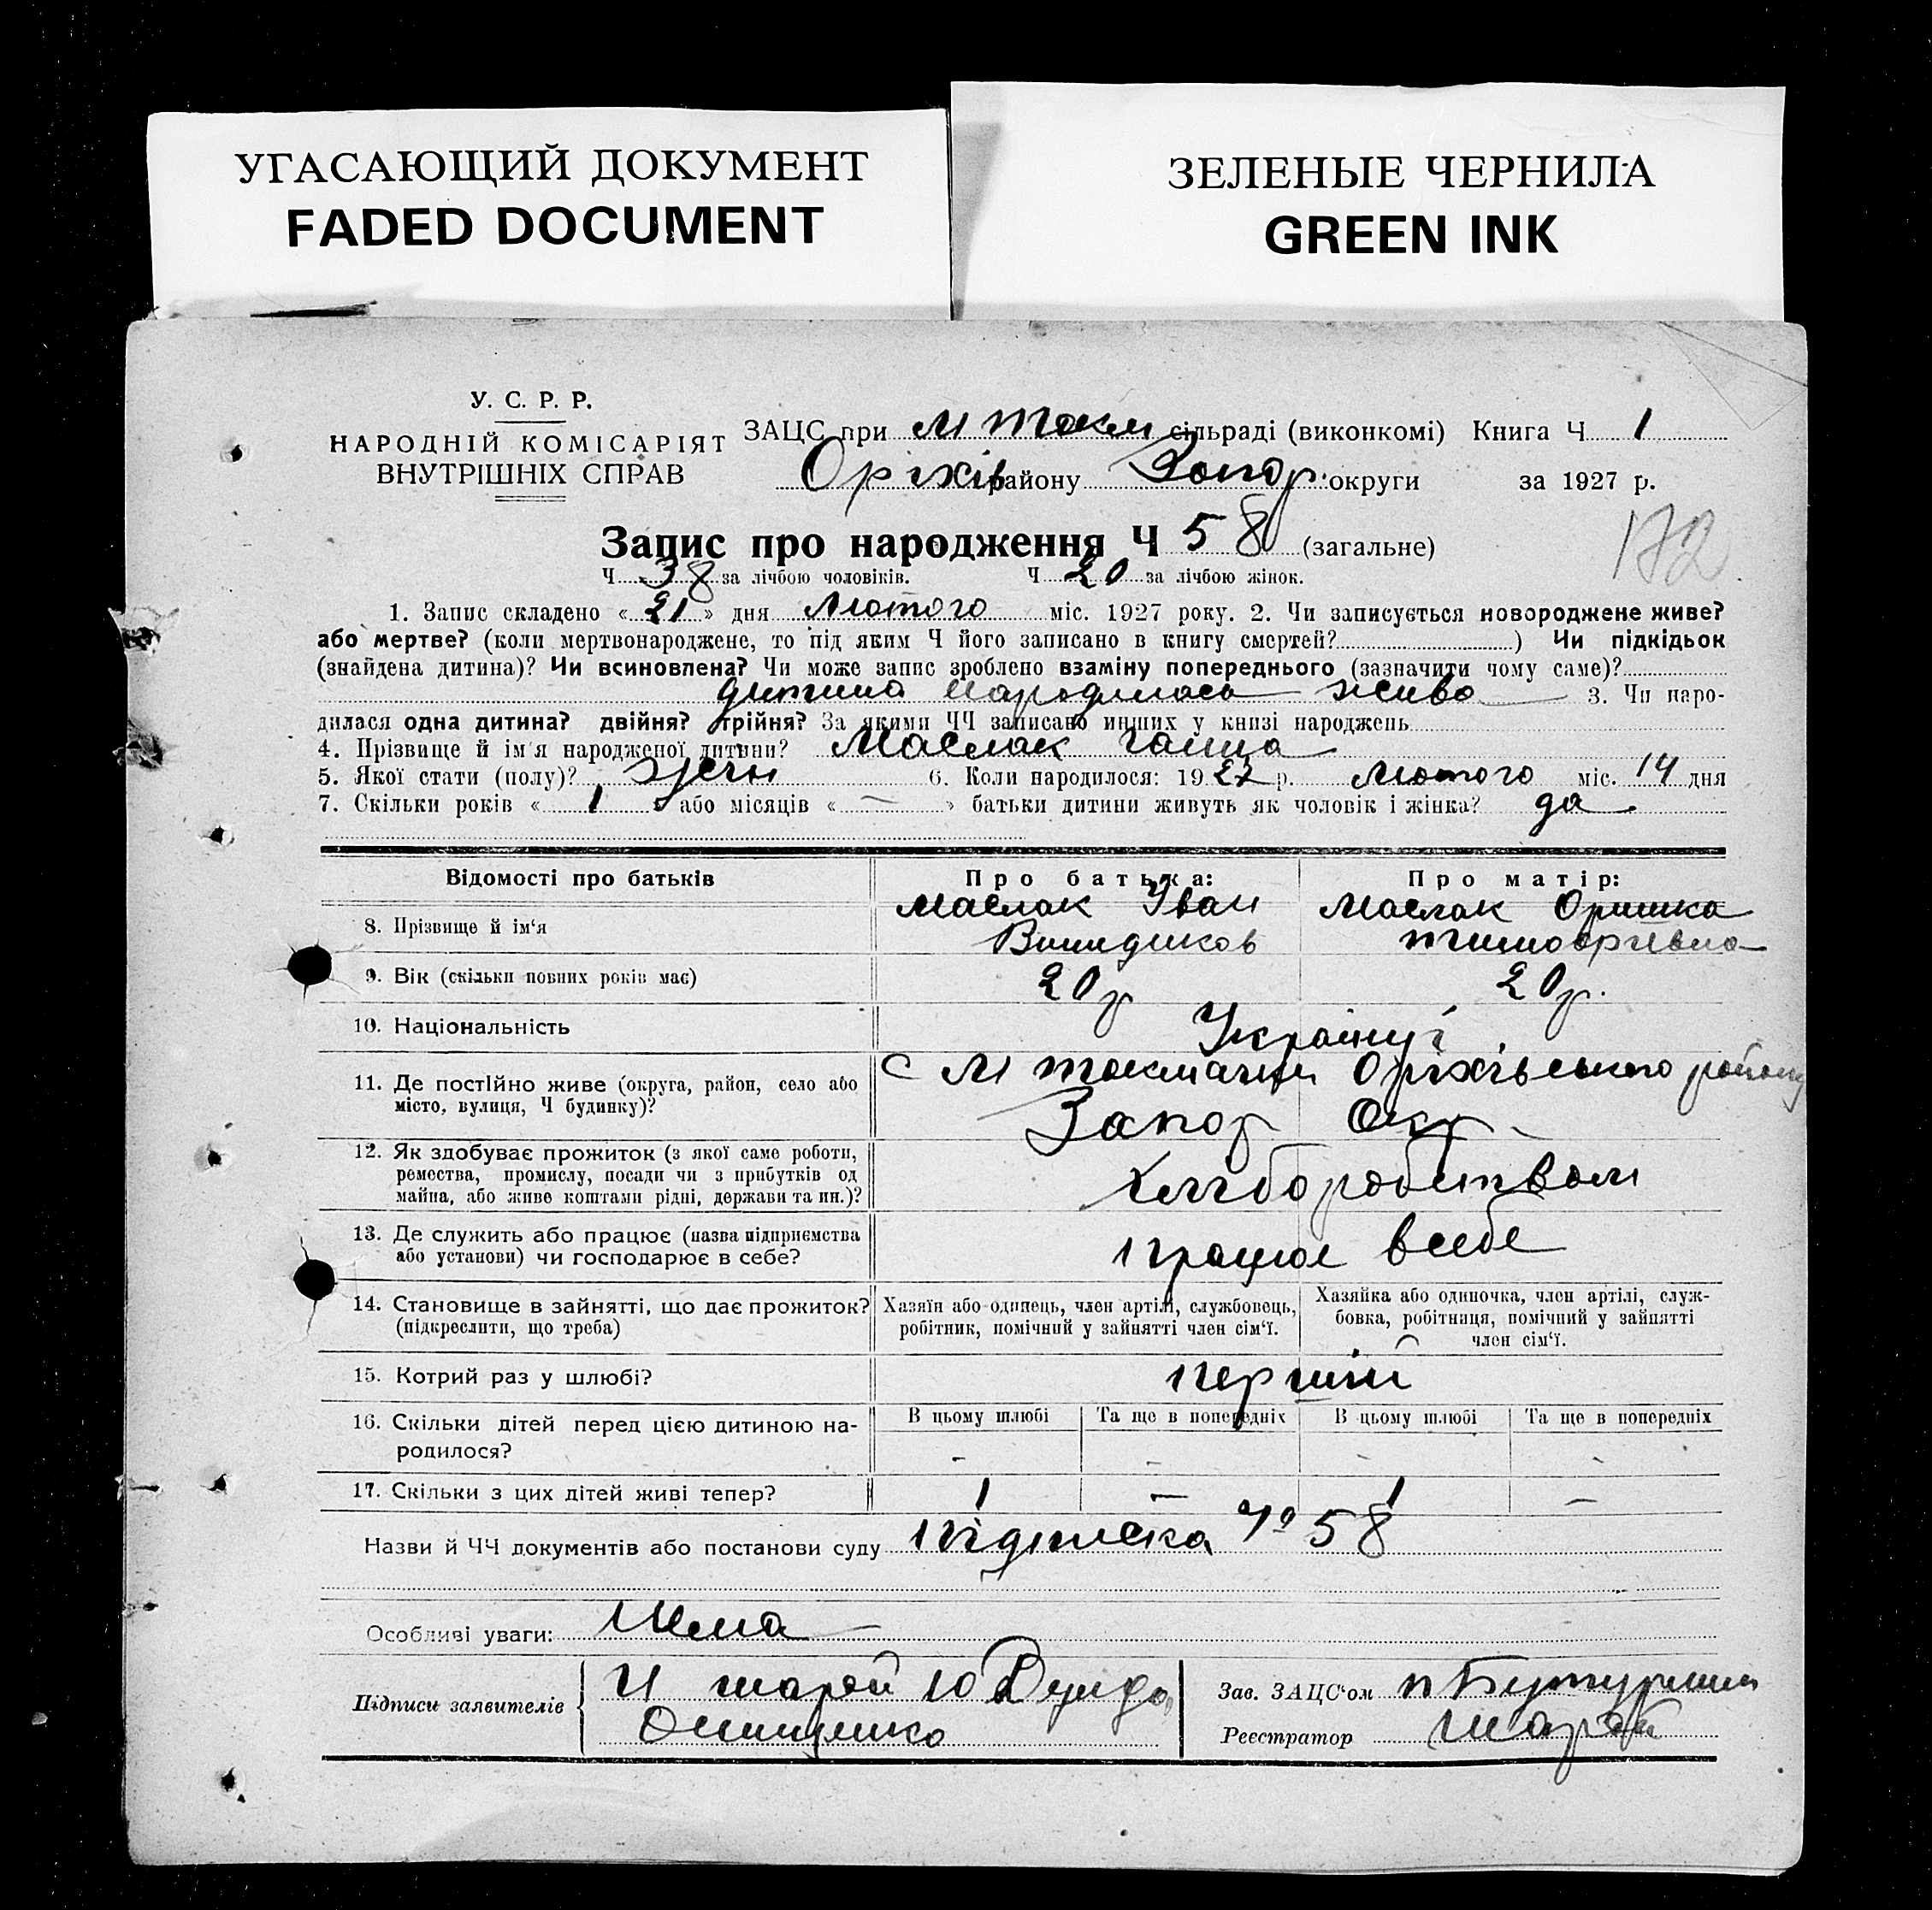 УГАСАЮЩИЙ ДОКУМЕНТ
FADED DOCUMENT
ЗЕЛЕНЫЕ ЧЕРНИЛА
GREEN INK
У. С. Р. Р.
НАРОДНІЙ КОМІСАРІЯТ
ВНУТРІШНІХ СПРАВ
ЗАЦС при М Токм сільраді (виконкомі) Книга Ч 1
Оріхів району Запор. округи за 1927 р.
Запис про народження Ч 58 (загальне)
172
Ч 38 за лічбою чоловіків. Ч 20 за лічбою жінок.
1. Запис складено « 21 » дня Лютого міс. 1927 року. 2. Чи записується новороджене живе?
або мертве? (коли мертвонароджене, то під яким Ч його записано в книгу смертей?) Чи підкідьок
(знайдена дитина)? Чи всиновлена? Чи може запис зроблено взаміну попереднього (зазначити чому саме)?
дитина народилась жива 3. Чи наро-
дилася одна дитина? двійня? трійня? За якими ЧЧ записано инших у книзі народжень
4. Прізвище й ім'я народженої дитини? Маслак Ганна
5. Якої стати (полу)? жечн 6. Коли народилося: 1927 р. Лютого міс. 14 дня
7. Скільки років « 1 » або місяців « — » батьки дитини живуть як чоловік і жінка? да
Відомості про батьків
Про батька:
Про матір:
8. Прізвище й ім'я
Маслак Іван
Маслак Оришка
9. Вік (скільки повних років має)
20 р
20 р.
10. Національність
Україн
11. Де постійно живе (округа, район, село або
місто, вулиця, Ч будинку)?
с М Токмачці Оріхівського району
Запор Окр
12. Як здобуває прожиток (з якої саме роботи,
ремества, промислу, посади чи з прибутків од
майна, або живе коштами рідні, держави та ин.)?
хліборобством
13. Де служить або працює (назва підприємства
або установи) чи господарює в себе?
працює в себе
14. Становище в зайнятті, що дає прожиток?
(підкреслити, що треба)
Хазяїн або одинець, член артілі, службовець,
робітник, помічний у зайнятті член сім'ї.
Хазяйка або одиночка, член артілі, служ-
бовка, робітниця, помічний у зайнятті
член сім'ї.
15. Котрий раз у шлюбі?
перший
16. Скільки дітей перед цією дитиною на-
родилося?
В цьому шлюбі Та ще в попередніх В цьому шлюбі Та ще в попередніх
- - - -
17. Скільки з цих дітей живі тепер?
1 — 1 —
Назви й ЧЧ документів або постанови суду підписка № 58
Особливі уваги: Нема
Підписи заявителів
Зав. ЗАЦС'ом
Реєстратор Шарай